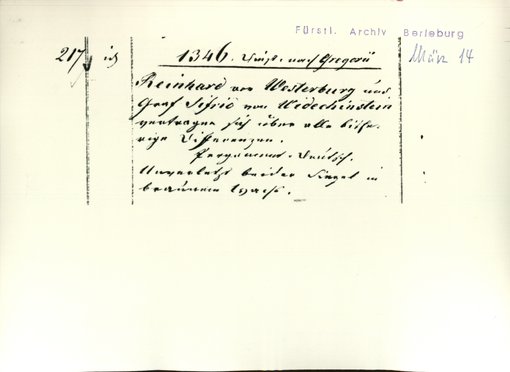 Fürstl. Archiv Berleburg
217 ich 1346. Dinst. nach Gregorii März 14
Reinhard von Westerburg und
Graf Sifrid von Widechinstein
vertragen sich über alle bishe-
rige Differenzen.
Pergament. Deutsch.
Unverletzt beider Siegel in
braunem Wachs.